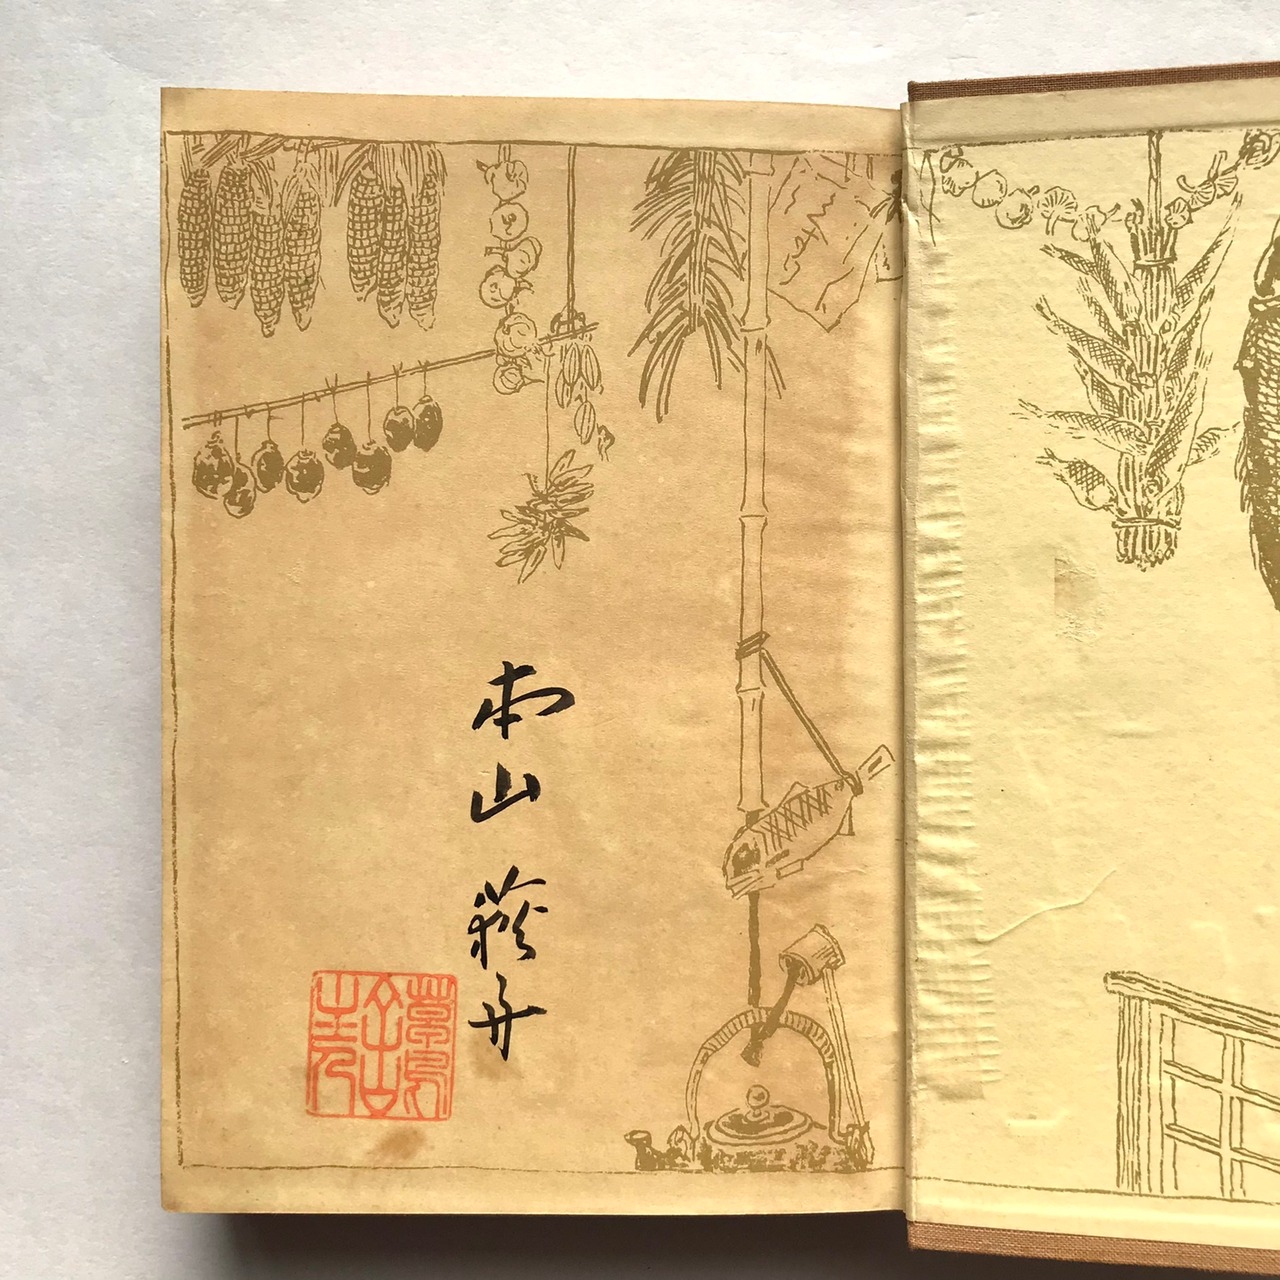 本山荻舟